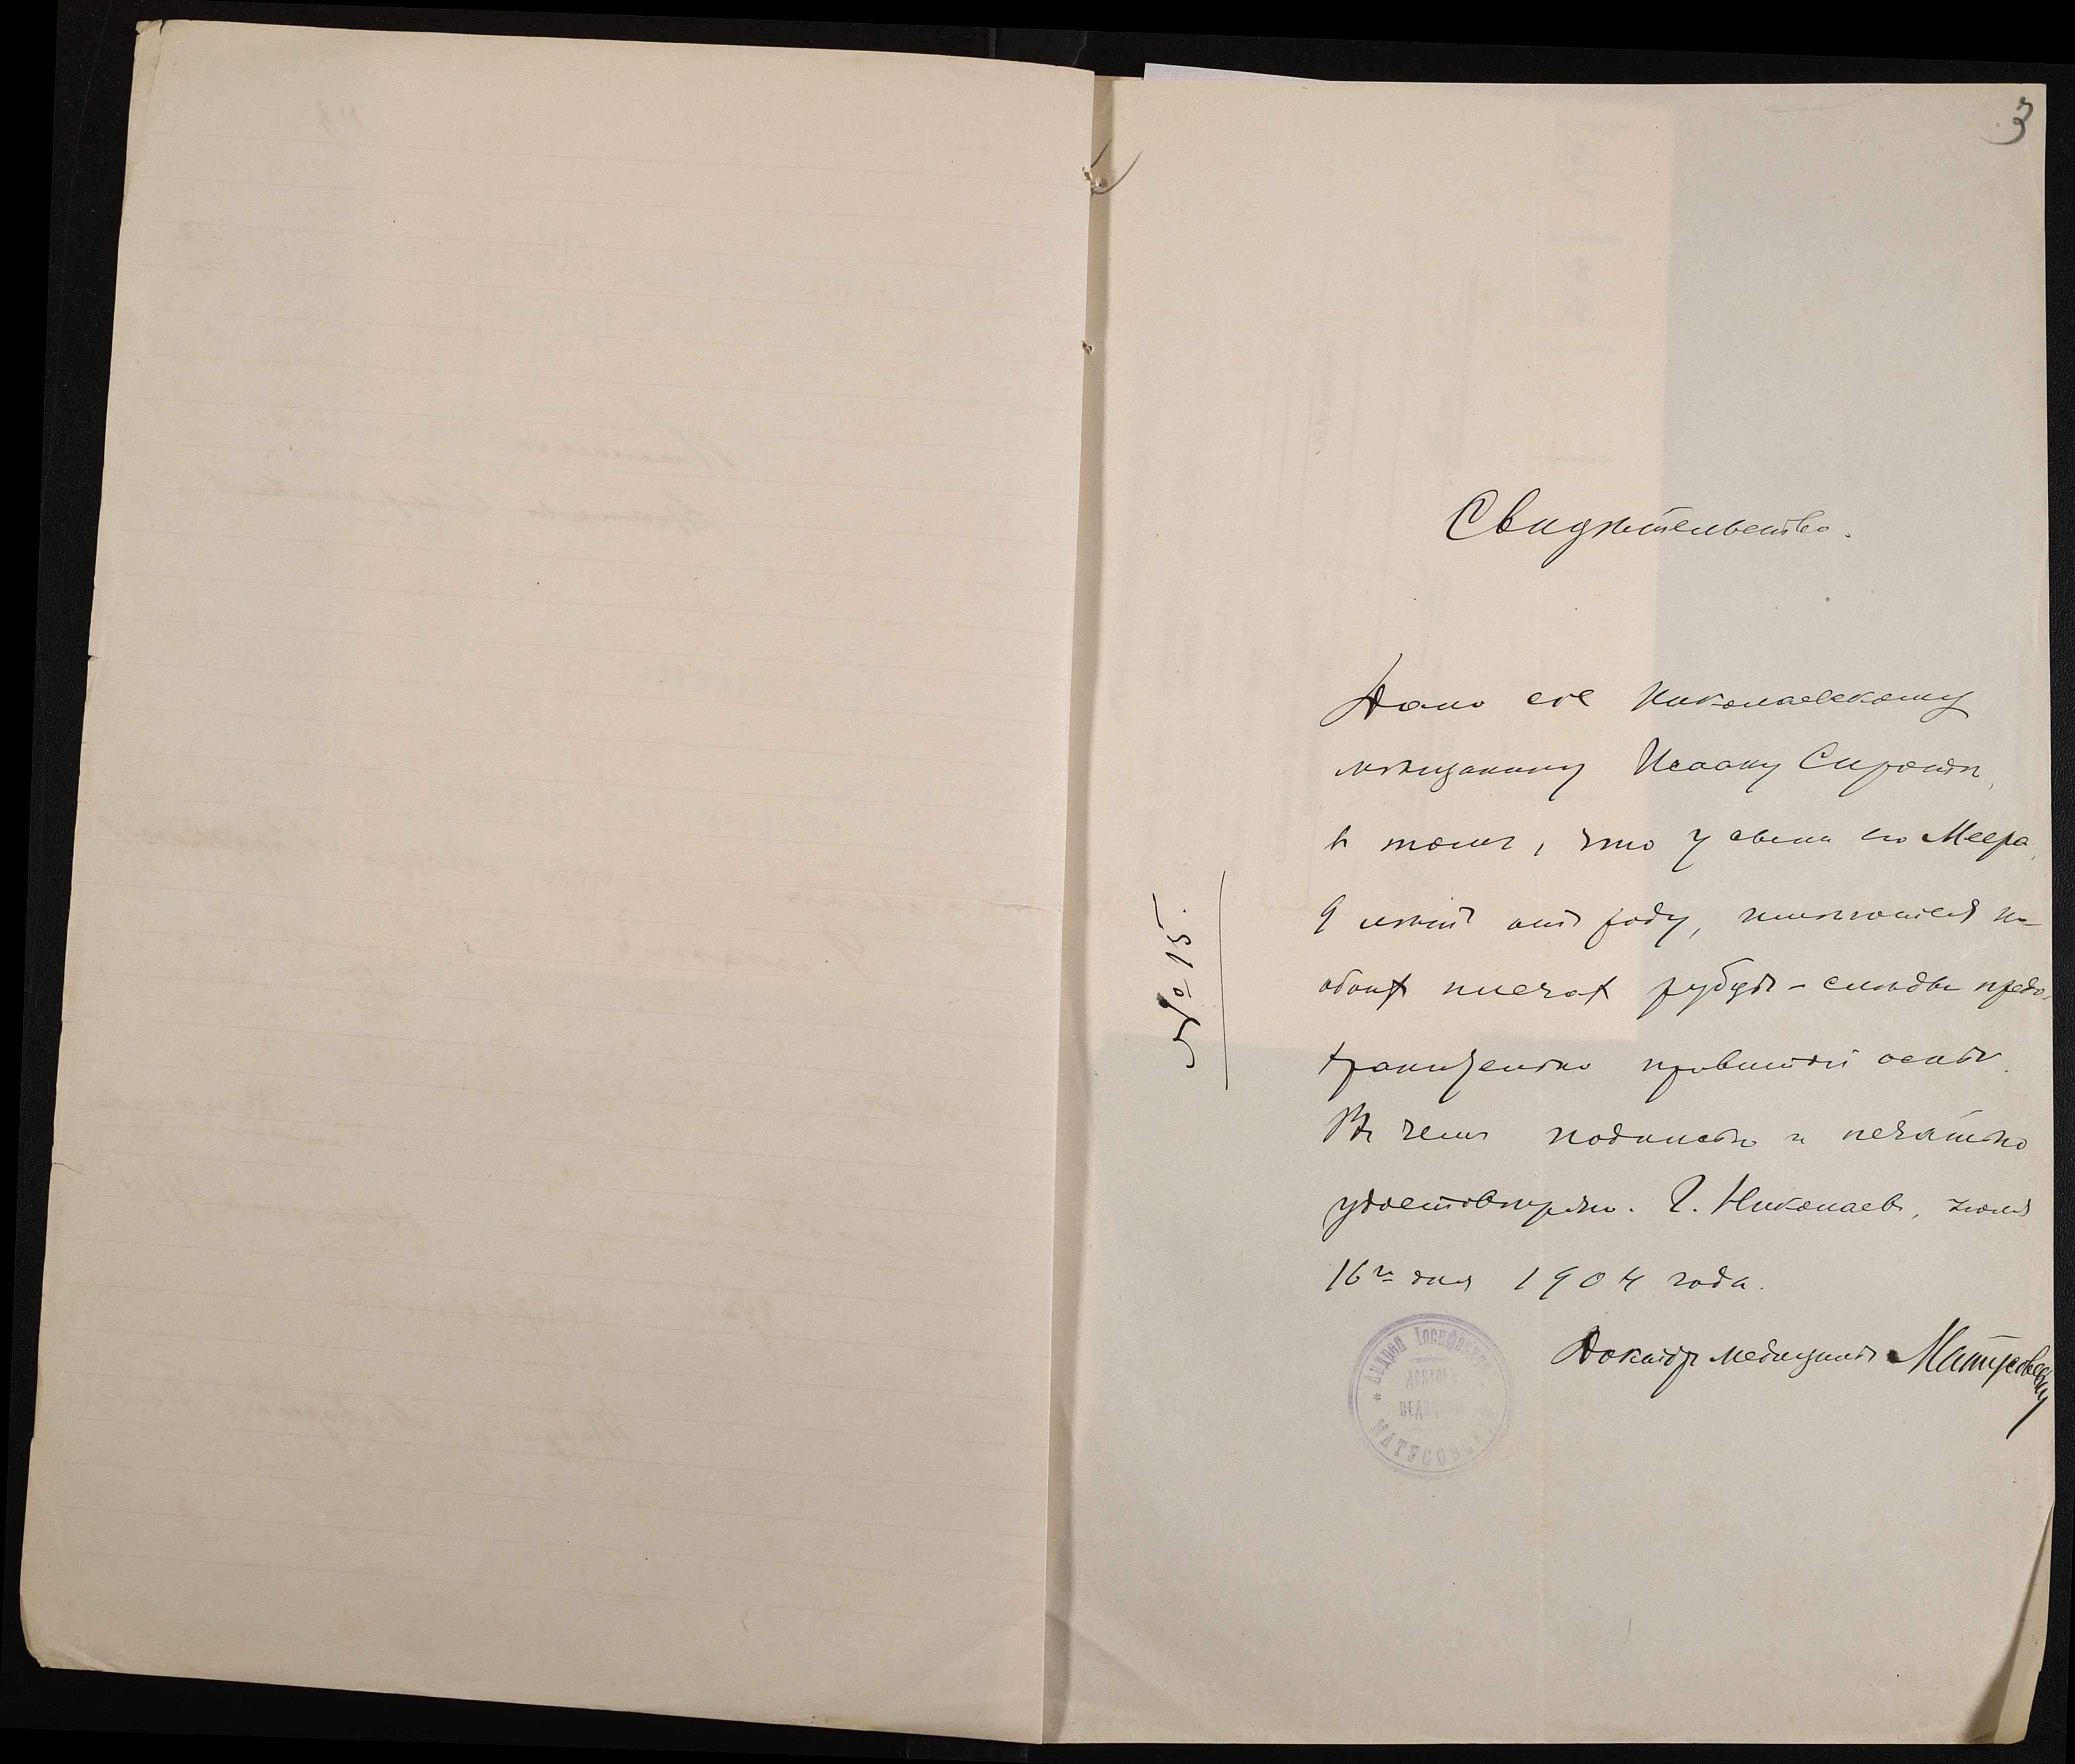 3
Свидѣтельство.
Дано сіе Николаевскому
мѣщанину Исааку Сиротѣ,
въ томъ, что у сына его Меера,
9 лѣтъ отъ роду, имѣются на
обоихъ плечахъ рубцы - слѣды предо-
хранительно привитой оспы.
Въ чемъ подписью и печатью
удостовѣряю. Г. Николаевъ, іюля
16го дня 1904 года.
Докторъ медицины Матусовскій
№ 15.
* Андрей Іосифовичъ
ДОКТОРЪ
МЕДИЦИНЫ
МАТУСОВСКІЙ